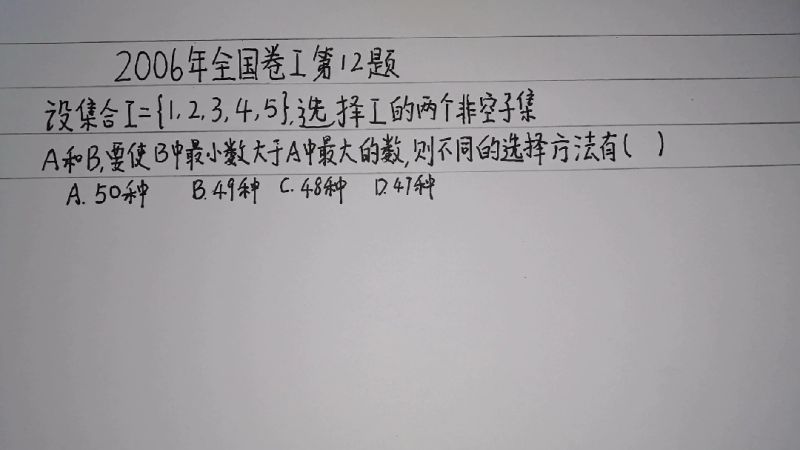 2006年全国卷I第12题
设集合I={1,2,3,4,5},选择I的两个非空子集
A和B,要使B中最小数大于A中最大的数,则不同的选择方法有( )
A. 50种 B. 49种 C. 48种 D. 47种